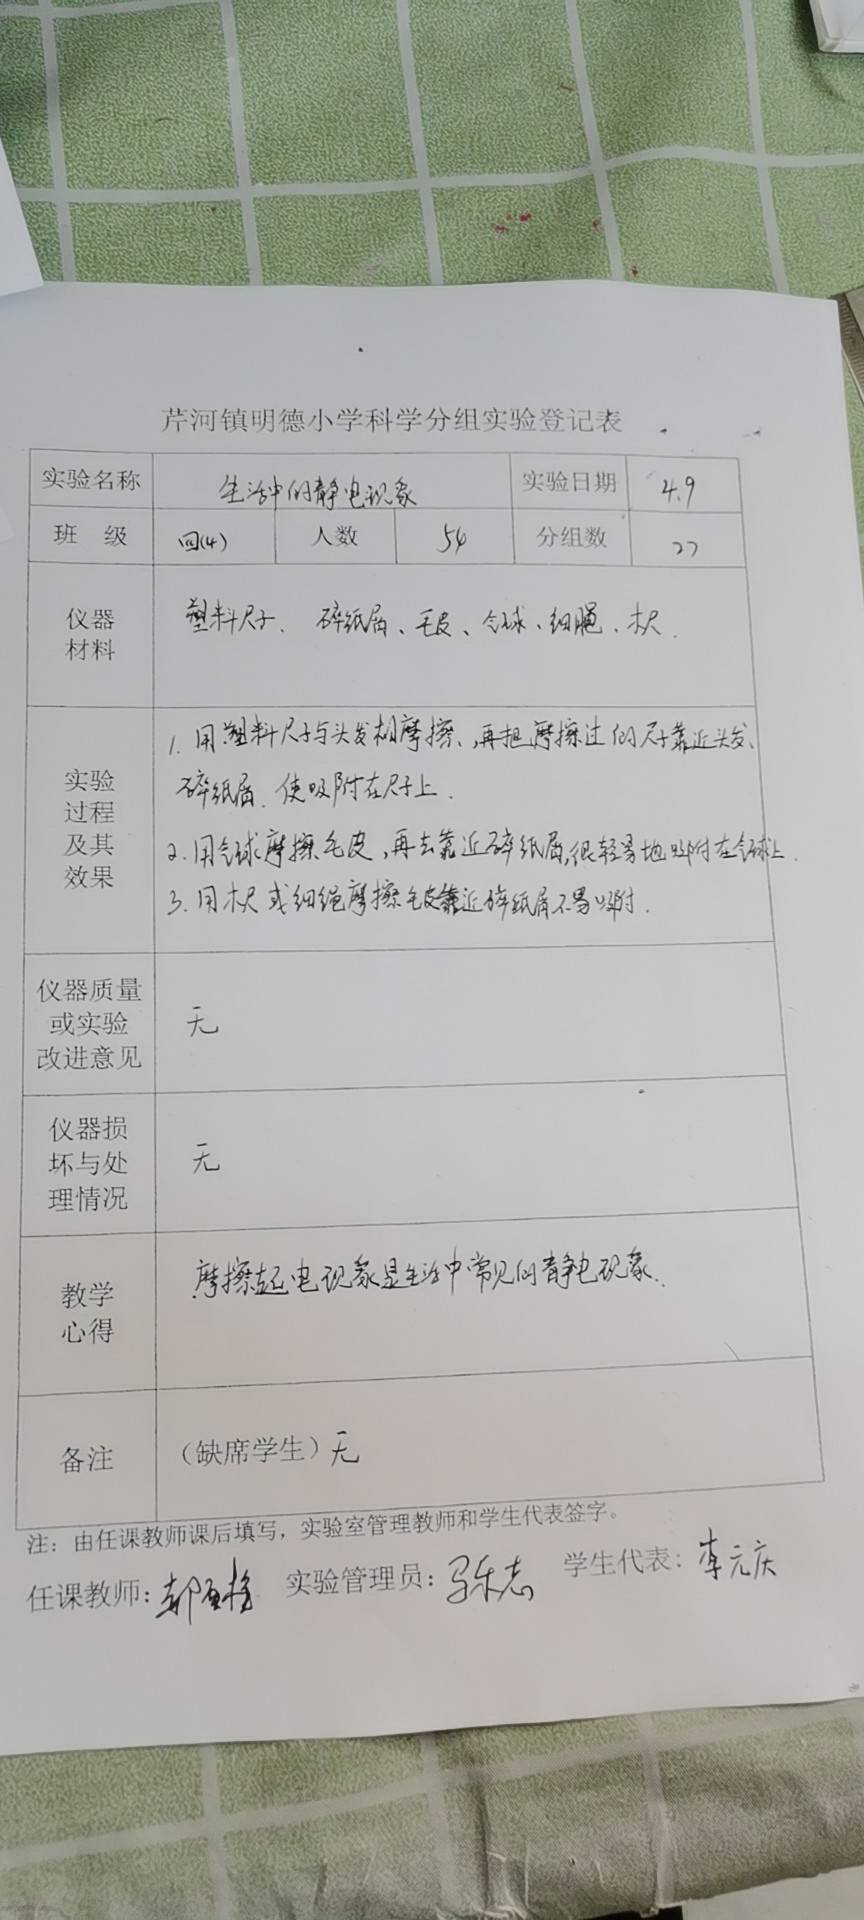 芹河镇明德小学科学分组实验登记表
实验名称 生活中的静电现象 实验日期 4.9
班 级 四(4) 人数 54 分组数 27
仪器
材料
塑料尺子、碎纸屑、毛皮、气球、细绳、木尺.
实验
过程
及其
效果
1. 用塑料尺子与头发相摩擦、,再把摩擦过的尺子靠近头发、
碎纸屑、使吸附在尺子上.
2. 用气球摩擦毛皮,再去靠近碎纸屑,很轻易地吸附在气球上.
3. 用木尺或细绳摩擦毛皮靠近碎纸屑不易吸附.
仪器质量
或实验
改进意见
无
仪器损
坏与处
理情况
无
教学
心得
摩擦起电现象是生活中常见的静电现象.
备注 (缺席学生)无
注：由任课教师课后填写，实验室管理教师和学生代表签字。
任课教师: 实验管理员: 学生代表: 李元庆